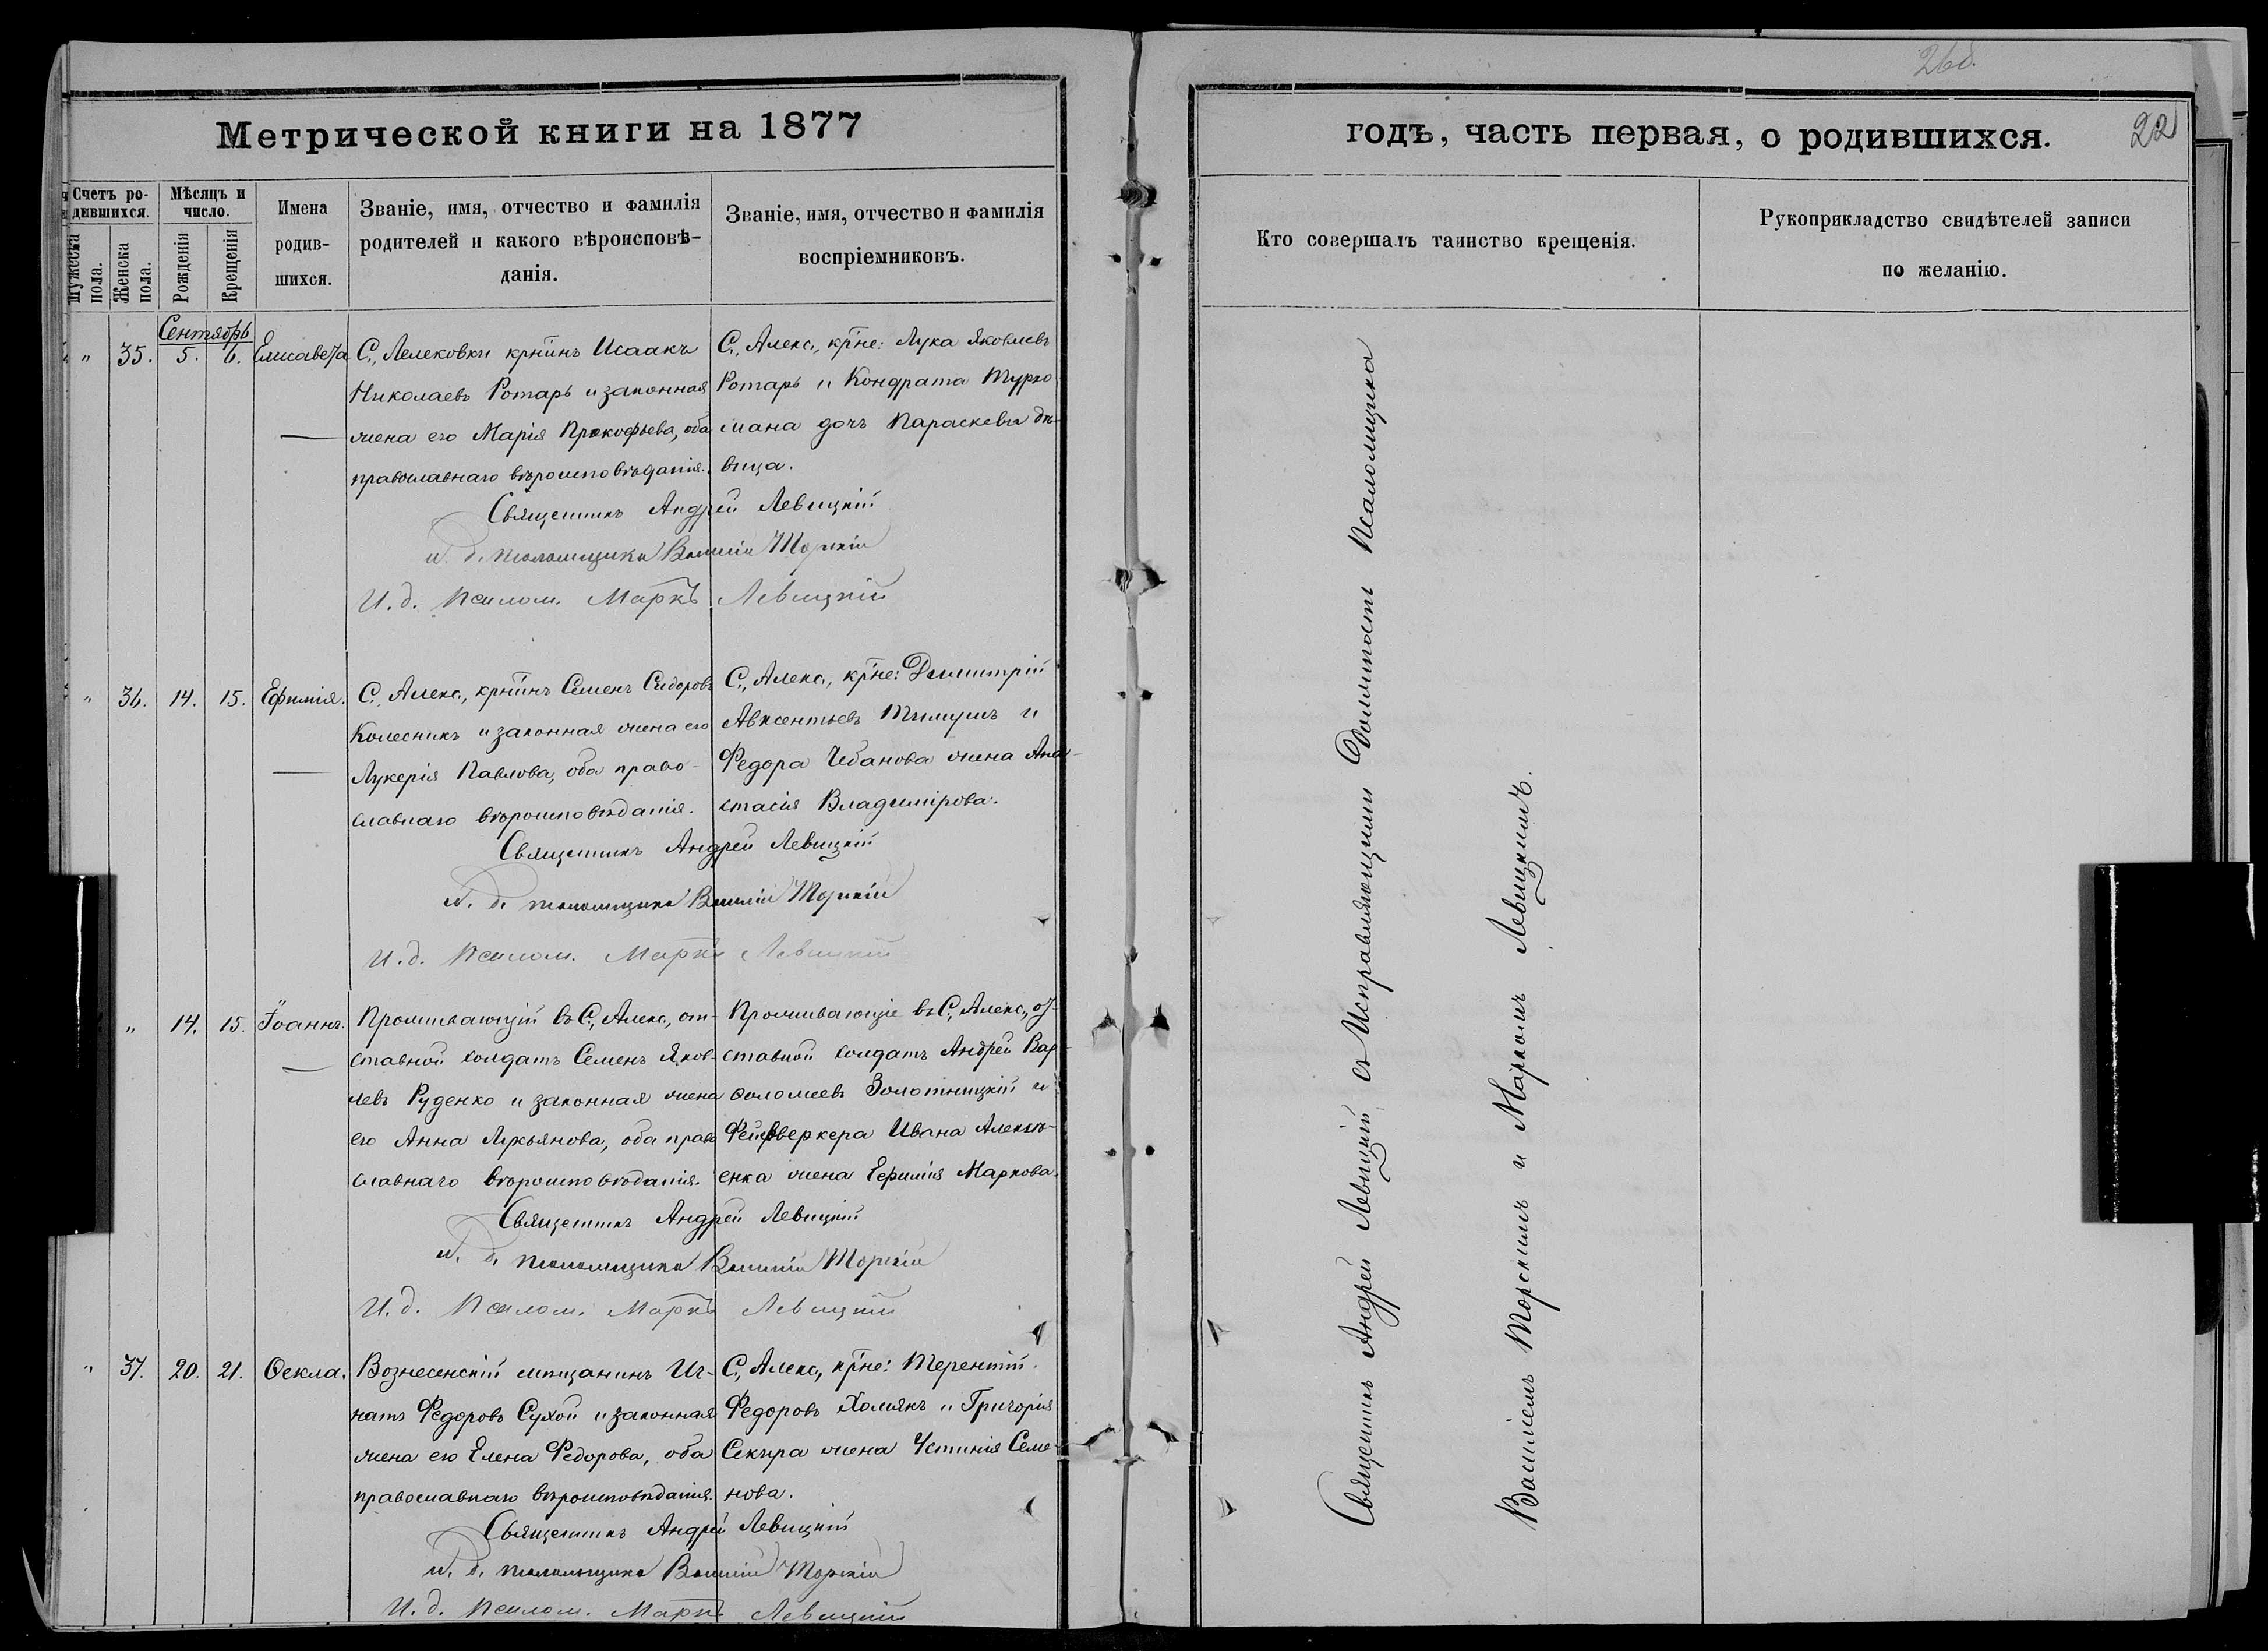 Метрической книги на 1877
Счетъ ро-
дившихся.
Мужеска пола.
Женска пола.
Мѣсяцъ и
число.
Рожденія
Крещенія
Имена
родив-
шихся.
Званіе, имя, отчество и фамилія
родителей и какого вѣроисповѣ-
данія.
Званіе, имя, отчество и фамилія
воспріемниковъ.
Сентябрь
" 35. 5. 6. Елисавета
С. Лелековки крн̃инъ Исаакъ
Николаевъ Ротарь и законная
жена его Марія Прокофьева, оба
православнаго вѣроисповѣданія.
С. Алекс., кр̃не: Лука Яковлевъ
Ротарь и Кондрата Турко
мана дочь Параскева дѣ-
вица.
Священникъ Андрей Левицкій
И. д. псаломщика Василій Торскій
И. д. Псалом. Маркъ Левицкій
" 36. 14. 15. Ефимія.
С. Алекс., крн̃инъ Семенъ Сидоровъ
Колесникъ и законная жена его
Лукерія Павлова, оба право-
славнаго вѣроисповѣданія.
С. Алекс., кр̃не: Димитрій
Авксентьевъ и
Федора Чебанова жена Ана-
стасія Владимірова.
Священникъ Андрей Левицкій
И. д. псаломщика Василій Торскій
И. д. Псалом. Маркъ Левицкій
" 14. 15. Іоаннъ.
Проживающій въ С. Алекс., от-
ставной солдатъ Семенъ Яков-
левъ Руденко и законная жена
его Анна Лукьянова, оба право
славнаго вѣроисповѣданія.
Проживающіе въ С. Алекс., от-
ставной солдатъ Андрей Вар-
фоломеевъ Золотницкій и
Фейерверкера Ивана Алексѣ-
енка жена Ефимія Маркова.
Священникъ Андрей Левицкій
И. д. псаломщика Василій Торскій
И. д. Псалом. Маркъ Левицкій
" 37. 20. 21. Ѳекла.
Вознесенскій мѣщанинъ Иг-
натъ Федоровъ Сухой и законная
жена его Елена Федорова, оба
православнаго вѣроисповѣданія.
С. Алекс., кр̃не: Терентій
Федоровъ Хомякъ и Григорія
Секира жена Устинія Семе-
нова.
Священникъ Андрей Левицкій
И. д. псаломщика Василій Торскій
И. д. Псалом. Маркъ Левицкій
26об.
годъ, часть первая, о родившихся.
22
Кто совершалъ таинство крещенія.
Рукоприкладство свидѣтелей записи
по желанію.
Священникъ Андрей Левицкій съ Исправляющими Должность Псаломщика
Василіемъ Торскимъ и Маркомъ Левицкимъ.